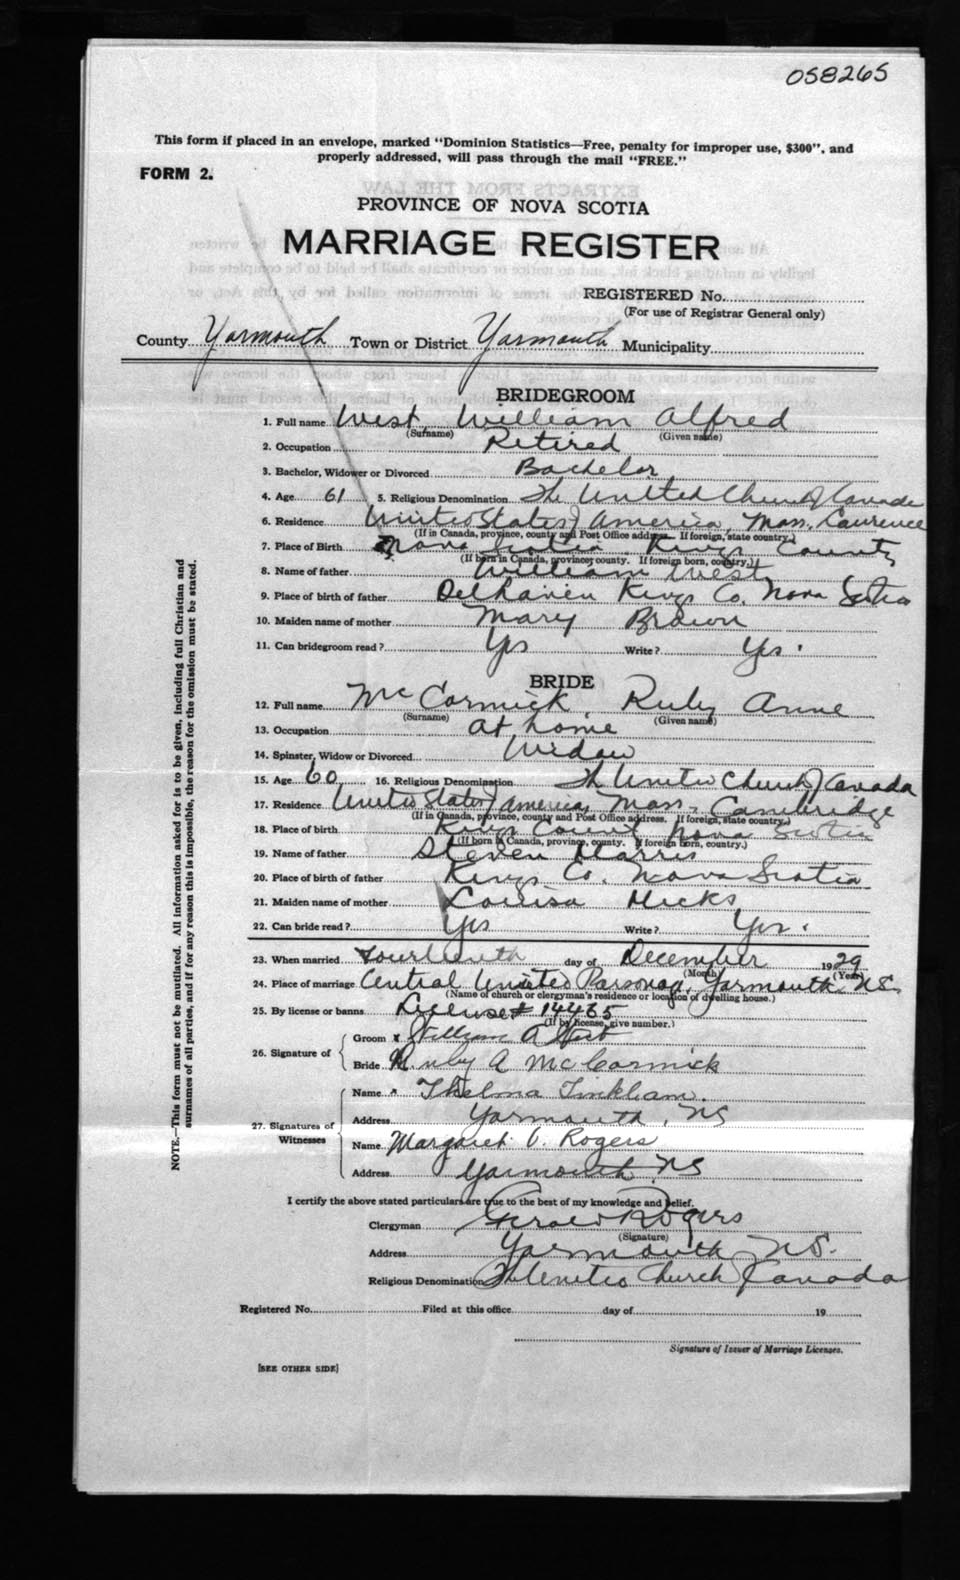 058265
This form if placed in an envelope, marked "Dominion Statistics—Free, penalty for improper use, $300", and
properly addressed, will pass through the mail "FREE."
FORM 2.
PROVINCE OF NOVA SCOTIA
MARRIAGE REGISTER
REGISTERED No.
(For use of Registrar General only)
County Yarmouth Town or District Yarmouth Municipality
BRIDEGROOM
1. Full name West William Alfred
(Surname) (Given name)
2. Occupation Retired
3. Bachelor, Widower or Divorced Bachelor
4. Age 61 5. Religious Denomination The United Church of Canada
6. Residence United States of America, Mass. Lawrence
(If in Canada, province, county and Post Office address. If foreign, state country.)
7. Place of Birth Nova Scotia Kings County
(If born in Canada, province, county. If foreign born, country.)
8. Name of father William West
9. Place of birth of father Delhaven Kings Co. Nova Scotia
10. Maiden name of mother Mary Brown
11. Can bridegroom read? Yes Write? Yes.
BRIDE
12. Full name McCormick, Ruby Anne
(Surname) (Given name)
13. Occupation at home
14. Spinster, Widow or Divorced Widow
15. Age 60 16. Religious Denomination The United Church of Canada
17. Residence United States of America, Mass. Cambridge
(If in Canada, province, county and Post Office address. If foreign, state country.)
18. Place of birth Kings County Nova Scotia
(If born in Canada, province, county. If foreign born, country.)
19. Name of father Steven Harris
20. Place of birth of father Kings Co. Nova Scotia
21. Maiden name of mother Louisa Hicks
22. Can bride read? Yes Write? Yes.
23. When married Fourteenth day of December 1929
(Month) (Year)
24. Place of marriage Central United Parsonage, Yarmouth, N.S.
(Name of church or clergyman's residence or location of dwelling house.)
25. By license or banns License # 14465
(If by license, give number.)
26. Signature of
Groom x William A West
Bride Ruby A McCormick
27. Signatures of Witnesses
Name Thelma Tinkham.
Address Yarmouth, NS
Name Margaret V. Rogers
Address Yarmouth NS
I certify the above stated particulars are true to the best of my knowledge and belief.
Clergyman Rogers
(Signature)
Address Yarmouth, N.S.
Religious Denomination The United Church of Canada
Registered No. Filed at this office day of 19
Signature of Issuer of Marriage Licenses.
[SEE OTHER SIDE]
NOTE.—This form must not be mutilated. All information asked for is to be given, including full Christian and
surnames of all parties, and if for any reason this is impossible, the reason for the omission must be stated.